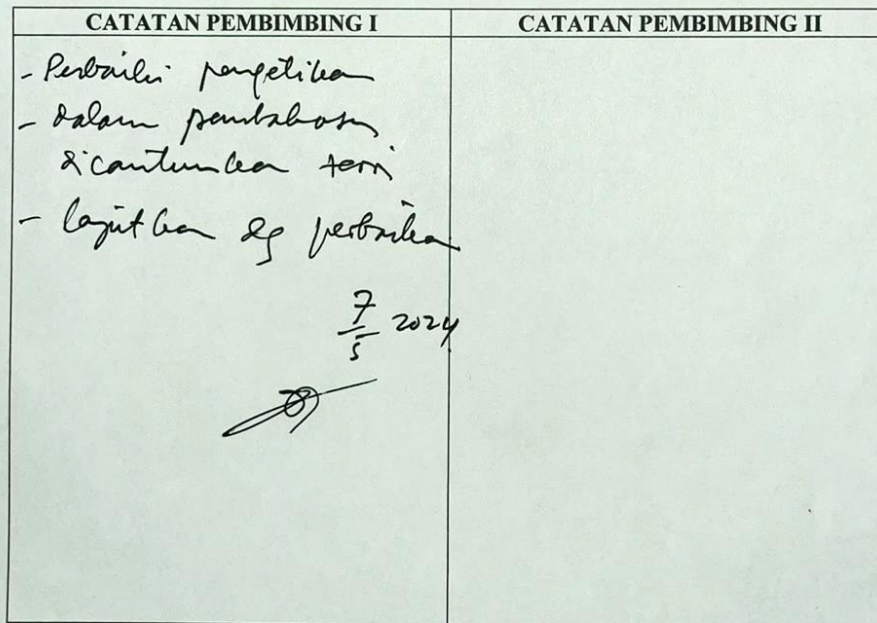 CATATAN PEMBIMBING I
CATATAN PEMBIMBING II
- Perbaiki pengetikan
- dalam pembahasan
dicantumkan teori
- lanjutkan dg perbaikan
7/5 2024